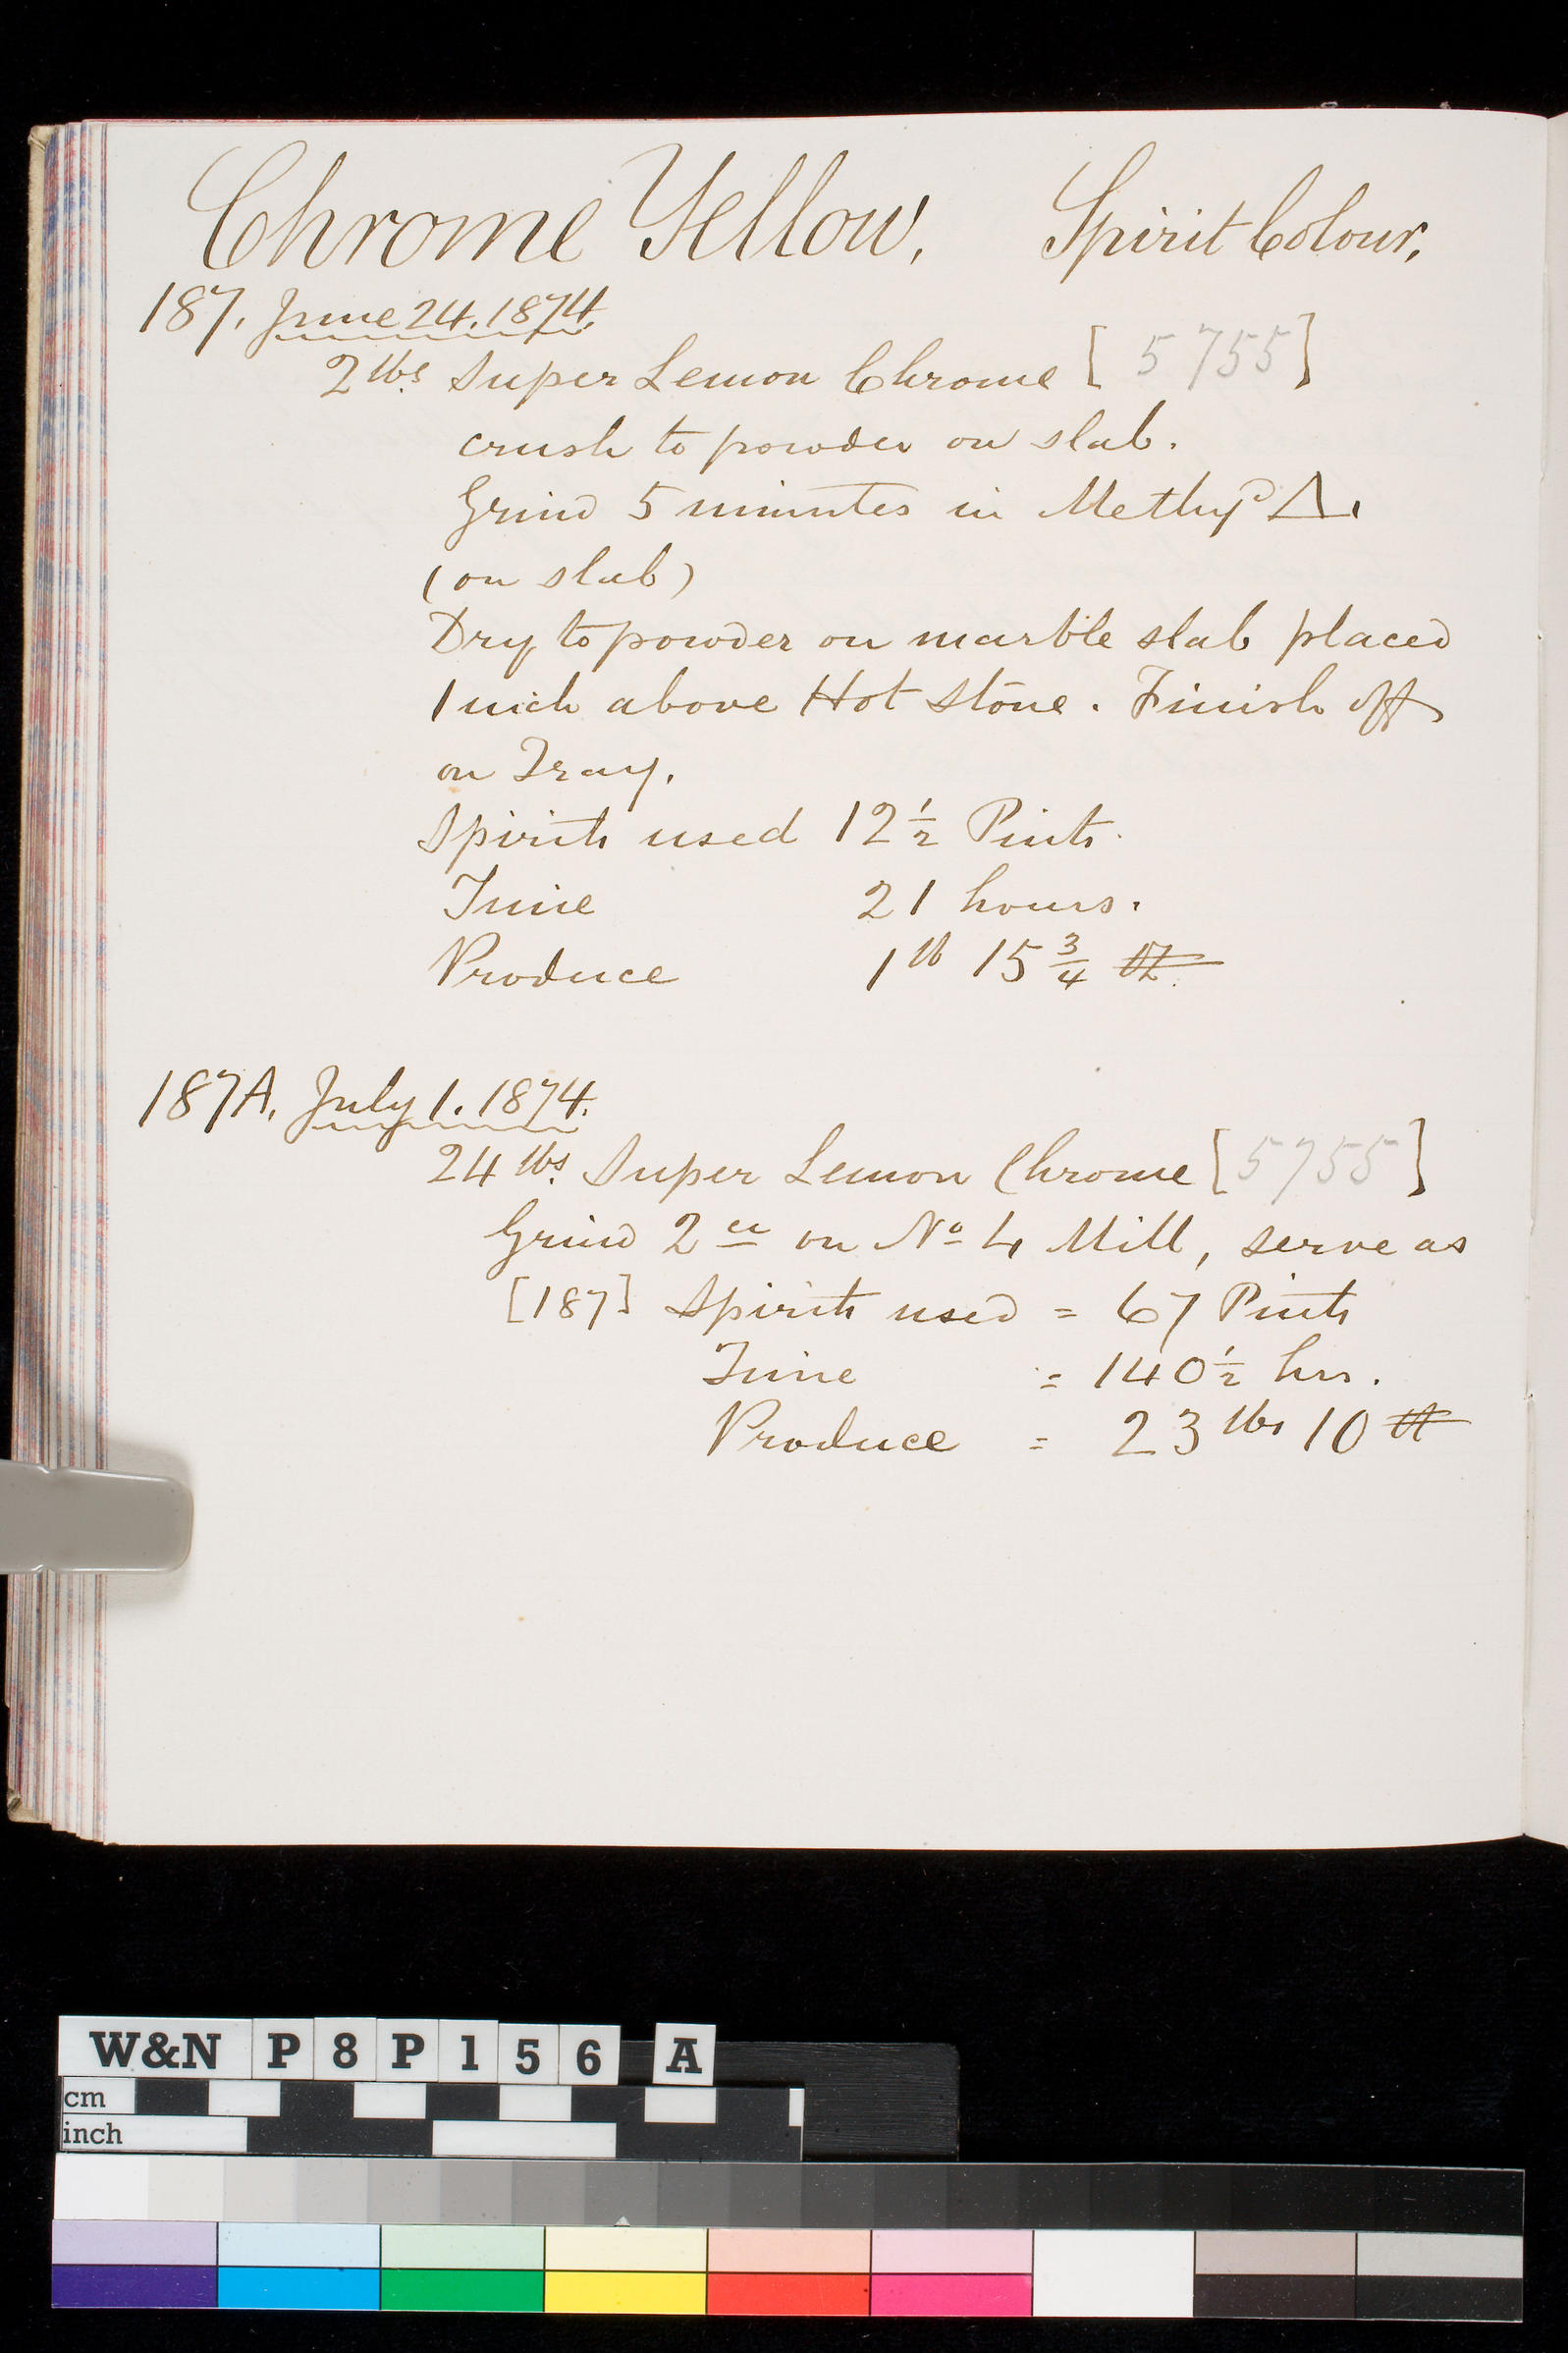 Chrome Yellow, Spirit Colour,
187. June 24. 1874.
2 lbs. Super Lemon Chrome [5755]
crush to powder on slab.
Grind 5 minutes in Methyd △.
(on slab)
Dry to powder on marble slab placed
1 inch above Hot stone. Finish off
on Tray.
Spirits used 12½ Pints.
Time 21 hours.
Produce 1 lb 15¾
187A. July 1. 1874.
24 lbs. Super Lemon Chrome [5755]
Grind 2 ce on No 4 Mill, serve as
[187] Spirits used = 67 Pints
Time = 140½ hrs.
Produce = 23 lbs 10
W&N P8P156 A
cm
inch